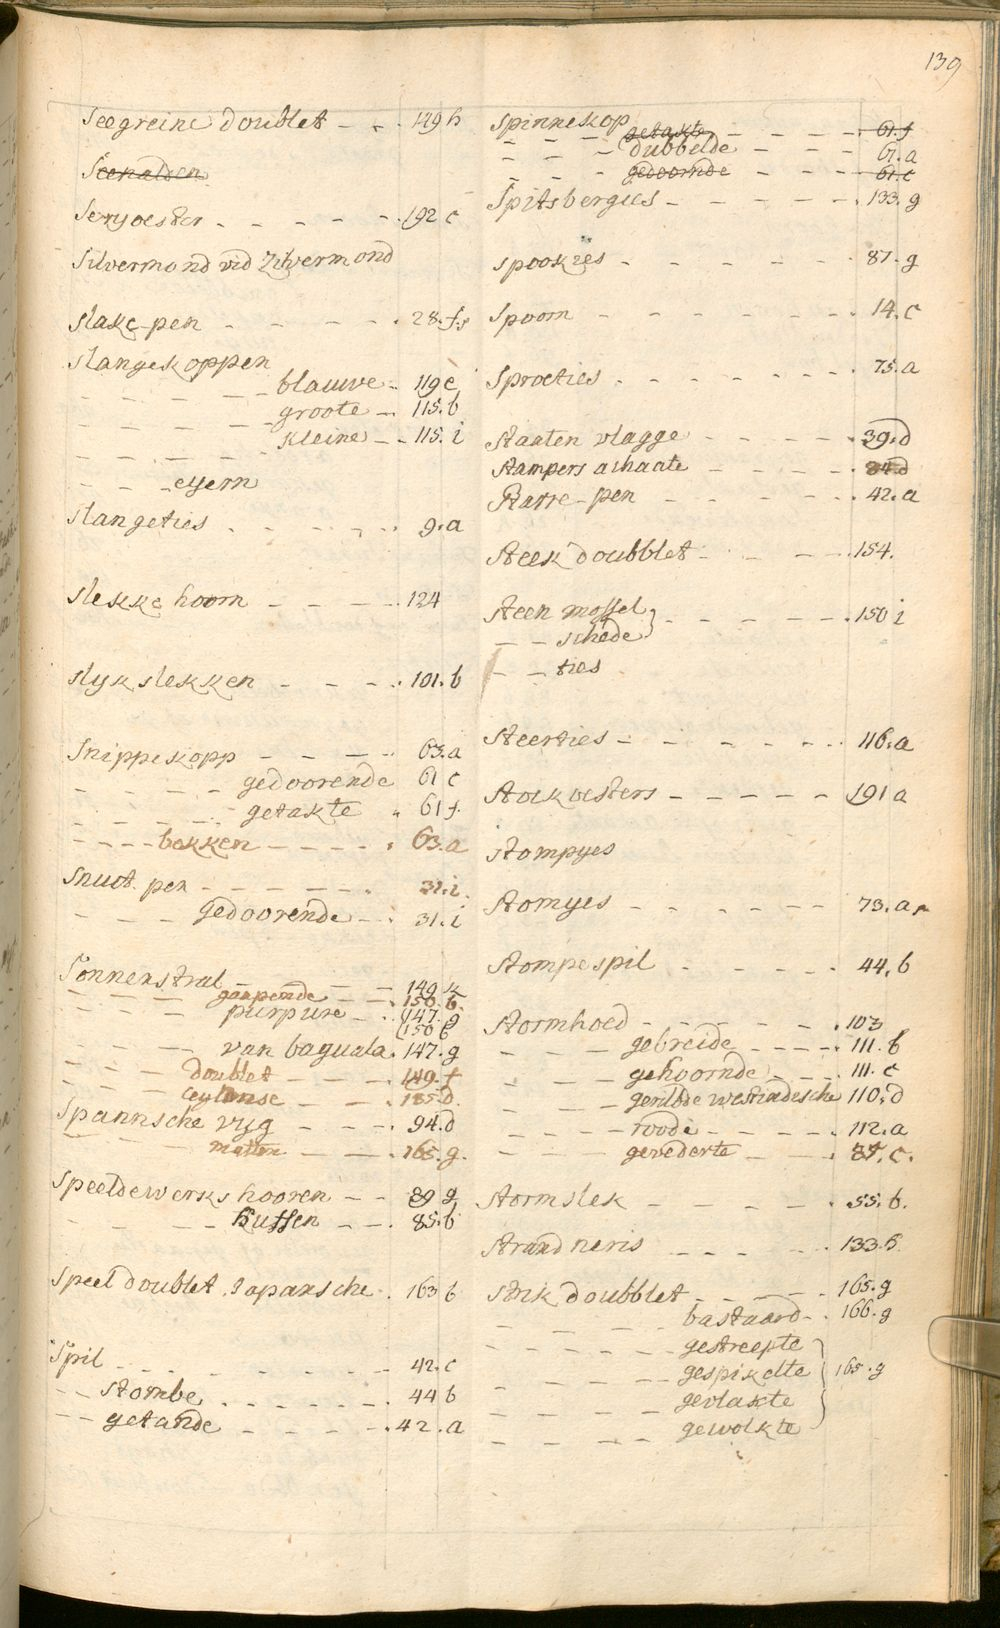 139
Seegreine doublet - - . 149 h
Seenalden
Seryoester - - - - - . 192 c
Silvermond vid Zilvermond
Slake-pen - - - - - . 28. f.
Slangekoppen
- - - - - blauwe - . 119 c
- - - - - groote - . 115. b
- - - - - Kleine - - . 115. i
- - - eyern
Slangeties - - - - - . 9. a
Slekke hoorn - - - - . 124
Slyk slekken - - - - . 101. b
Snippekopp - - - - . 63. a
- - - - gedoorende 61 c
- - - - getakte . 61 f.
- - - - bekken - - - - . 63. a
Snuit pen - - - - - - . 31. i.
- - - - gedoorende - - . 31. i
Sonnenstral - - - - 149 k
- - - - gaapende - - . 150. b.
- - - - purpure - - . 147. g
150 c
- - - - van baguala . 147. g
- - - - doublet - - - . 149. f
- - - - Ceylonse - - - . 185. d.
Spannsche vyg - - - . 94. d
- - - - matten - - - . 165. g.
Speeldewerks hooren - - . 89 g
- - - - Kussen - - . 85. b
Speel doublet. Japansche . 163 b
Spil - - - - - - - . 42. c
- - Stombe - - - - - - . 44 b
- - getande - - - - . 42. a
Spinneskop
- - - - getakte - - - - . 61. f
- - - - dubbelde - - - 61. a
- - - - gedoornde - - - . 61. c
Spitsbergies - - - - - - . 133. g
Spookies - - - - - - 87. g
Spoorn - - - - - - - . 14. c
Sproeties - - - - - - - . 75. a
Staaten vlagge - - - - . 39. d
Stampers achaate - - - - . 84. d
Starre-pen - - - - - . 42. a
Steek doubblet - - - - . 154.
Steen mossel } - - - - - . 150 i
- - schede
- - ties
Steerties - - - - - - - . 116. a
Stokoesters - - - - - - 191 a
Stompyes
Stomyes - - - - - - 73. a.
Stompe spil - - - - . 44. b
Stormhoed - - - - - - . 103
- - - gebreide - - - - . 111. b
- - - gehoornde - - - . 111. c
- - - gerilde westindesche 110. d
- - - - roode - - - - - . 112. a
- - - - gevederte - - - . 87. c.
Stormslek - - - - - . 55. b.
Strand neris - - - - . 133. h
Strik doubblet - - - - . 165. g
- - - - - bastaard - . 166. g
- - - - - gestreepte
- - - - - gespikelte } 165. g
- - - - - gevlakte
- - - - - gewolkte